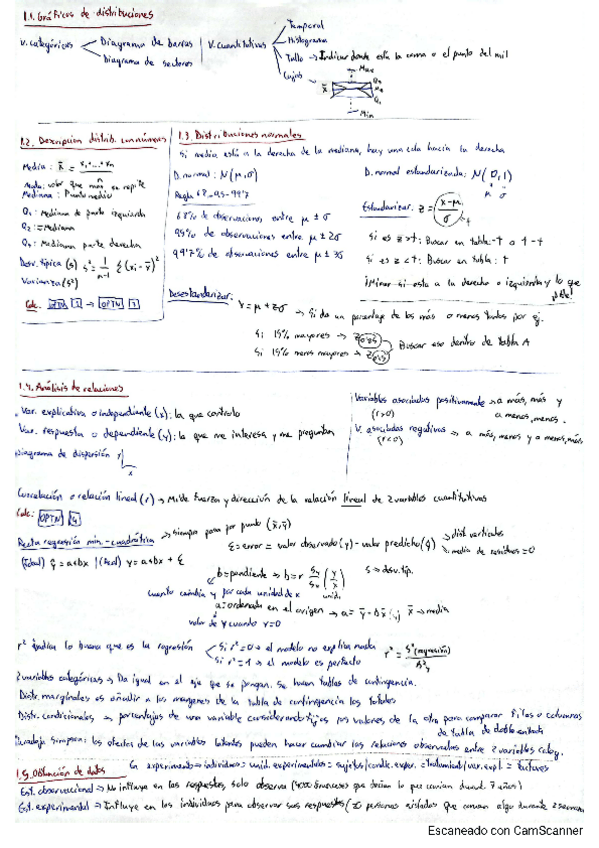 1.1. Gráficos de distribuciones
V. categóricas
Diagrama de barras
Diagrama de sectores
V. cuantitativas
Temporal
Histograma
Tallo → Indicar donde está la coma o el punto del mil
Cajas
Max
x̄
Min
1.2. Descripción distrib. con números
Media: x̄ =
Moda: valor que más se repite
Mediana: Punto medio
Q₁: Mediana de parte izquierda
Q₂: = Mediana
Mediana parte derecha
Desv. típica (s) s² = 1/n-1 Σ(xi - x̄)²
Varianza (s²)
Calc. 1 → OPTN 3
1.3. Distribuciones normales
Si media está a la derecha de la mediana, hay una cola hacia la derecha
D. normal: N(μ, σ)
Regla 68-95-99'7
68% de observaciones entre μ ± σ
95% de observaciones entre μ ± 2σ
99'7% de observaciones entre μ ± 3σ
D. normal estandarizada: N(0,1)
μ σ
Estandarizar: z = (x-μ)/σ
Si es z>t: Buscar en tabla -t o 1-t
Si es z<t: Buscar en tabla: t
¡Mirar si esta a la derecha o izquierda y lo que pide!
Desestandarizar: x = μ + zσ → Si da un porcentaje de los más o menos todos por ej.
Si 15% mayores → z 0'85
Si 15% menos mayores → z 0'15
Buscar eso dentro de tabla A
1.4. Análisis de relaciones
Var. explicativa o independiente (x): la que controlo
Var. respuesta o dependiente (y): la que me interesa y me preguntan
Diagrama de dispersión y x
Variables asociadas positivamente → a más, más y
(r>0) a menos, menos.
V. asociadas negativas → a más, menos y a menos, más
(r<0)
Correlación o relación lineal (r) → Mide fuerza y dirección de la relación lineal de 2 variables cuantitativas
Calc: OPTN 4
Recta regresión mín-cuadrática → siempre pasa por punto (x̄,ȳ)
ε = error = valor observado (y) - valor predicho (ŷ)
dist verticales
media de residuos = 0
(Ideal) ŷ = a+bx | (Real) y = a+bx + ε
b = pendiente → b = r Sy/Sx (y/x) s → desv. típ.
cuanto cambia y por cada unidad de x
a = ordenada en el origen → a = ȳ - bx̄ x̄ → media
valor de y cuando x=0
r² indica lo buena que es la regresión
Si r²=0 → el modelo no explica nada
Si r²=1 → el modelo es perfecto
r² = s²(regresión)/s²y
2 variables categóricas → Da igual en el eje que se pongan. Se hacen tablas de contingencia.
Distr. marginales es añadir a los margenes de la tabla de contingencia los totales
Distr. condicionales → porcentajes de una variable considerando fijos los valores de la otra para comparar filas o columnas
de tabla de doble entrada
Paradoja Simpson: los efectos de las variables latentes pueden hacer cambiar las relaciones observadas entre 2 variables categ.
1.5. Obtención de datos
En experimento → individuos = unid. experimentales = sujetos / condic. exper. = tratamiento / var. expl. = factores
Est. observacional → No influye en las respuestas, solo observa
Est. experimental → Influye en los individuos para observar sus respuestas
Escaneado con CamScanner